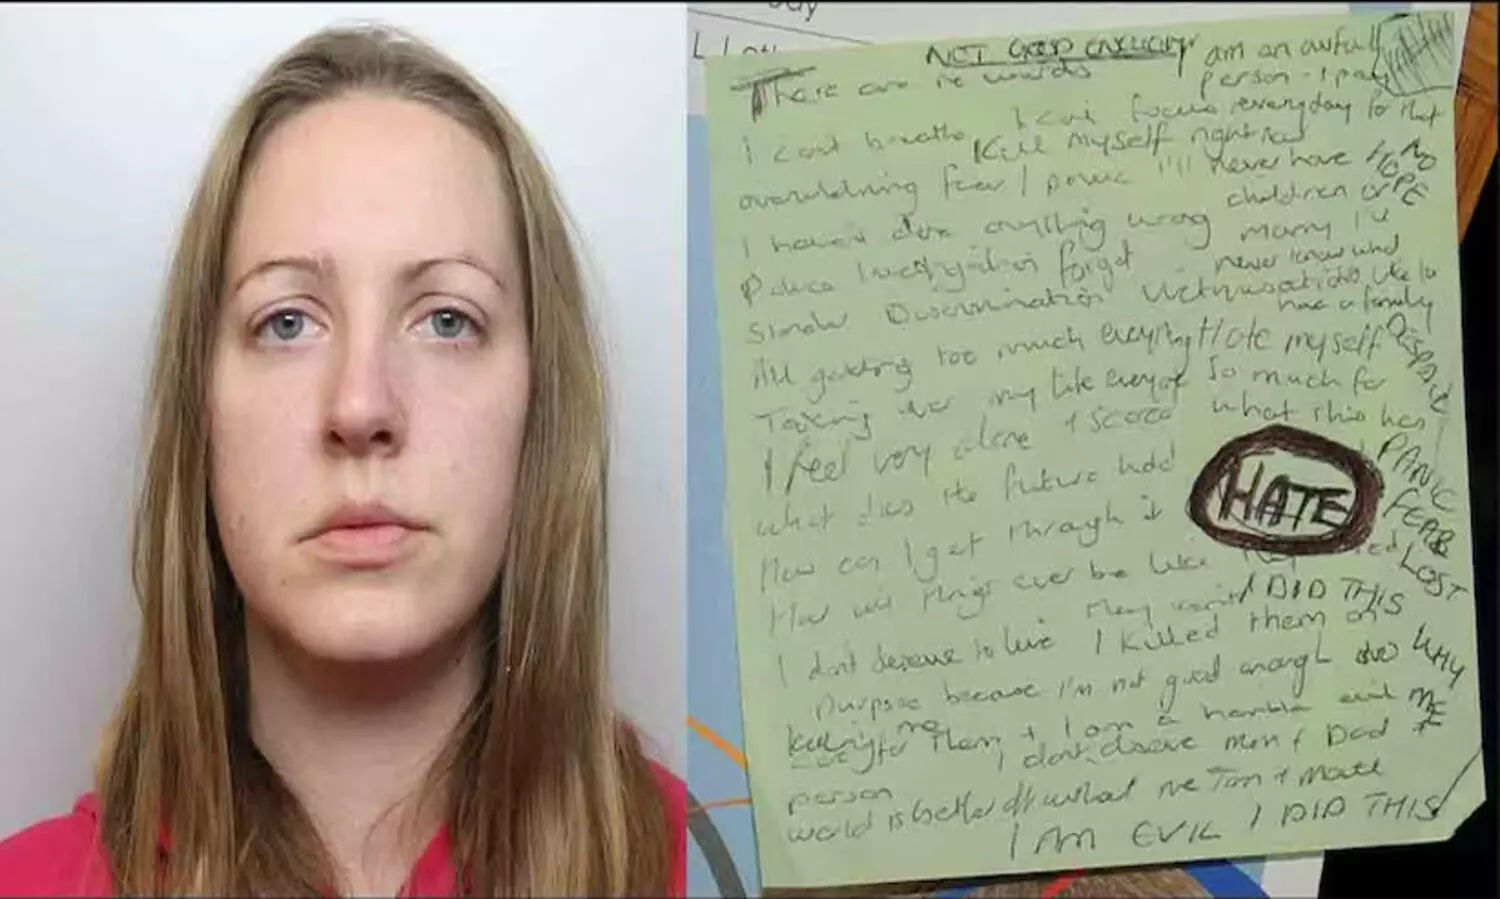 NOT GOOD ENOUGH
There are no words
I am an awful
person - I pay
everyday for that
I cant breathe
I cant focus
Kill myself right now
overwhelming fear / panic
I'll never have
children or
marry I'll
never know what
like to
have a family
NO
HOPE
I haven't done anything wrong
Police investigation forget
Slander Discrimination Victimisation
All getting too much everything
Hate myself
so much for
what this has
DESPAIR
PANIC
FEAR
LOST
Taking over my life
I feel very alone + scared
What does the future hold
How can I get through it
How will things ever be like
HATE
I DID THIS
WHY
ME
I don't deserve to live
I killed them on
purpose because I'm not good enough
to
care for them + I am a horrible evil
person
I don't deserve Mum + Dad
world is better off without me
I AM EVIL I DID THIS